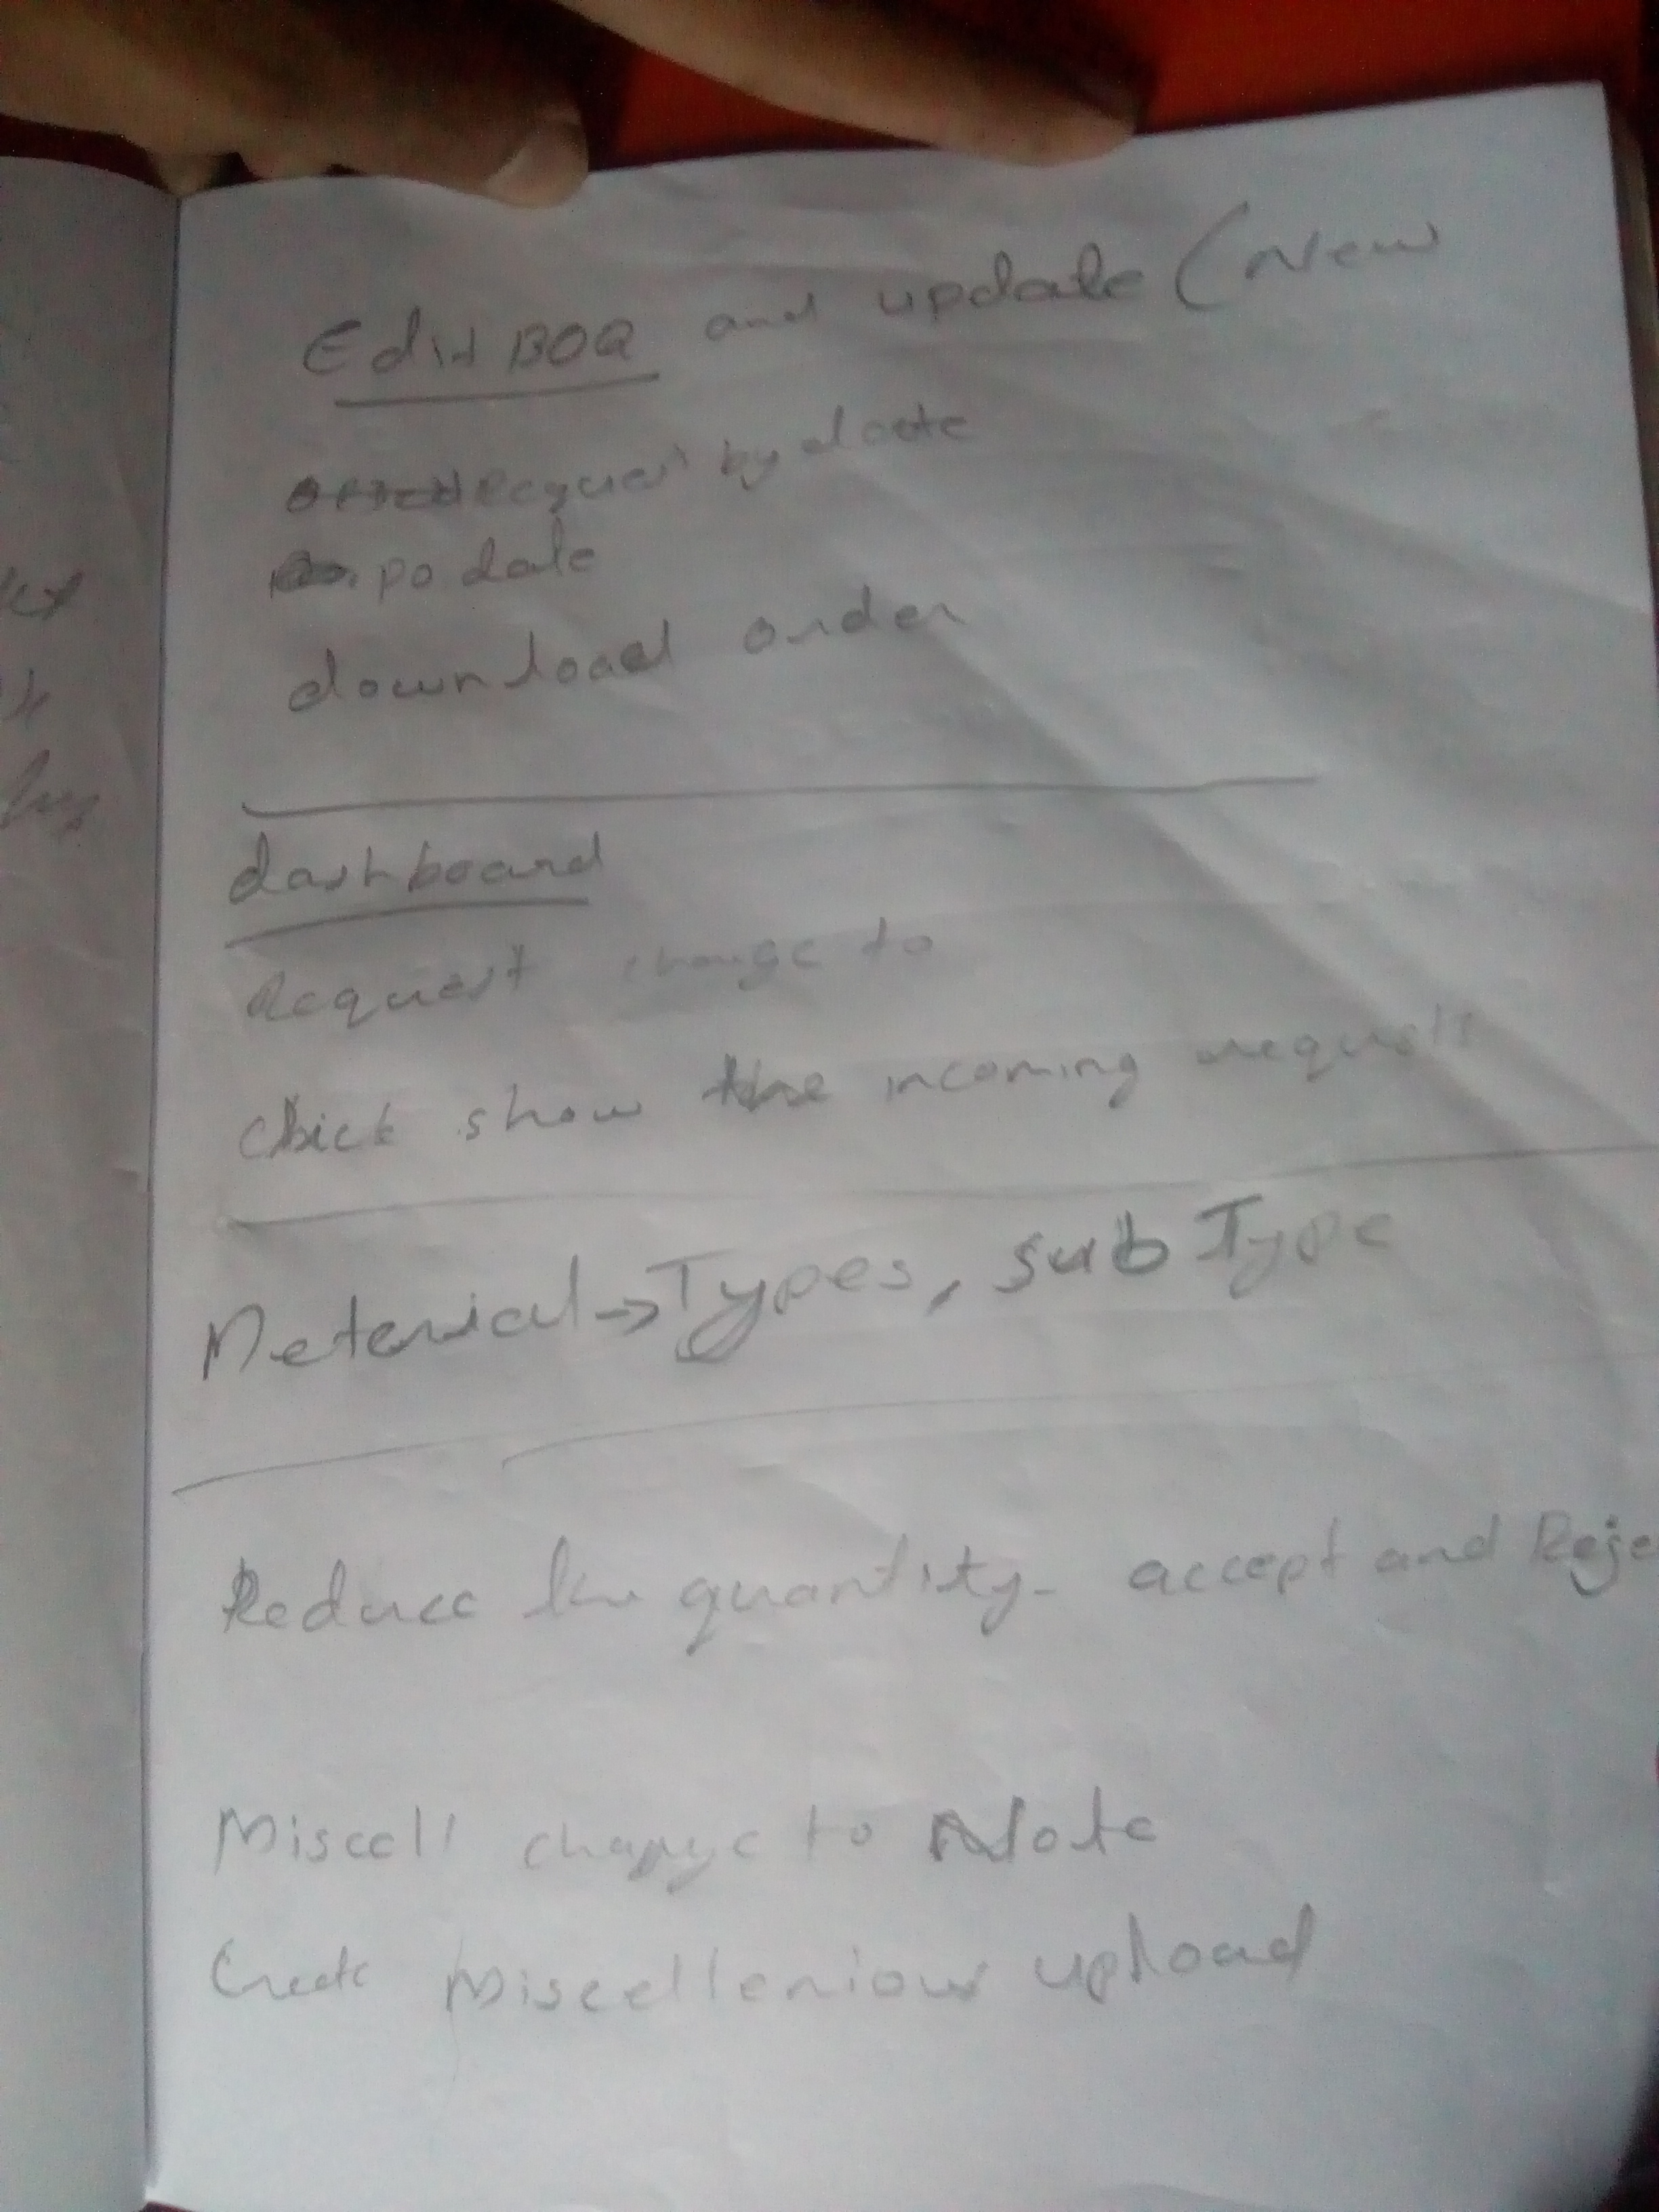 Edit BOQ and update (New
Request by date
po date
download order
dashboard
Request change to
Click show the incoming requests
Meterial → Types, sub Type
Reduce the quantity - accept and Reje
Miscell change to Note
Create Miscellenious upload